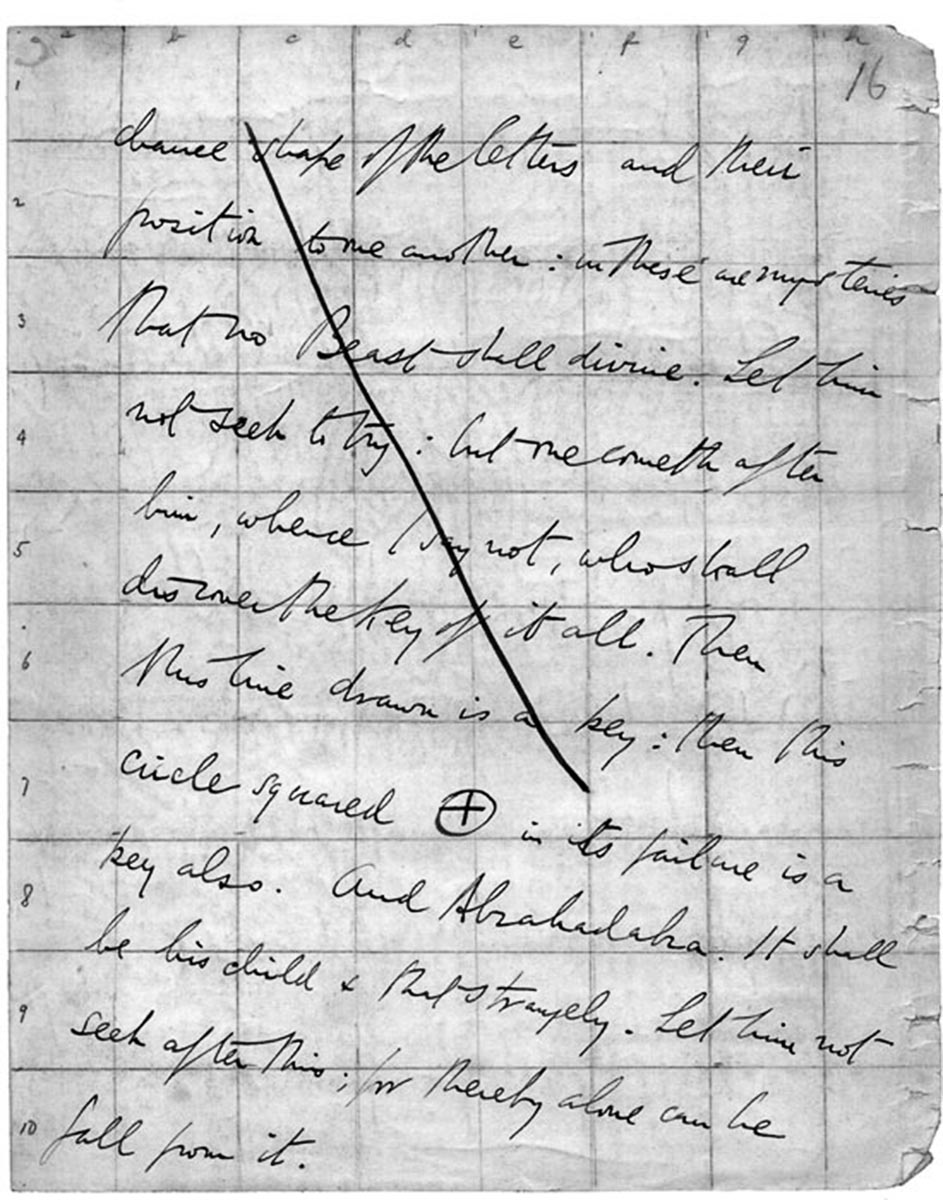 a b c d e f g h
16
1
chance shape of the letters and their
2
position to one another: in these are mysteries
3
that no Beast shall divine. Let him
4
not seek to try: but one cometh after
5
him, whence I say not, who shall
discover the Key of it all. Then
6
this line drawn is a key: then this
7
circle squared ⊕ in its failure is a
8
key also. And Abrahadabra. It shall
be his child & that strangely. Let him not
9
seek after this; for thereby alone can he
10
fall from it.